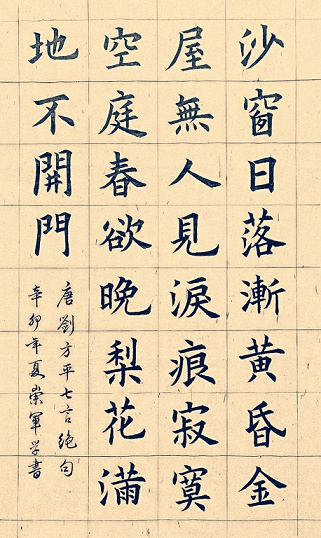 沙窗日落漸黃昏金
屋無人見淚痕寂寞
空庭春欲晚梨花滿
地不開門
唐劉方平七言絶句
辛卯年夏崇軍学書